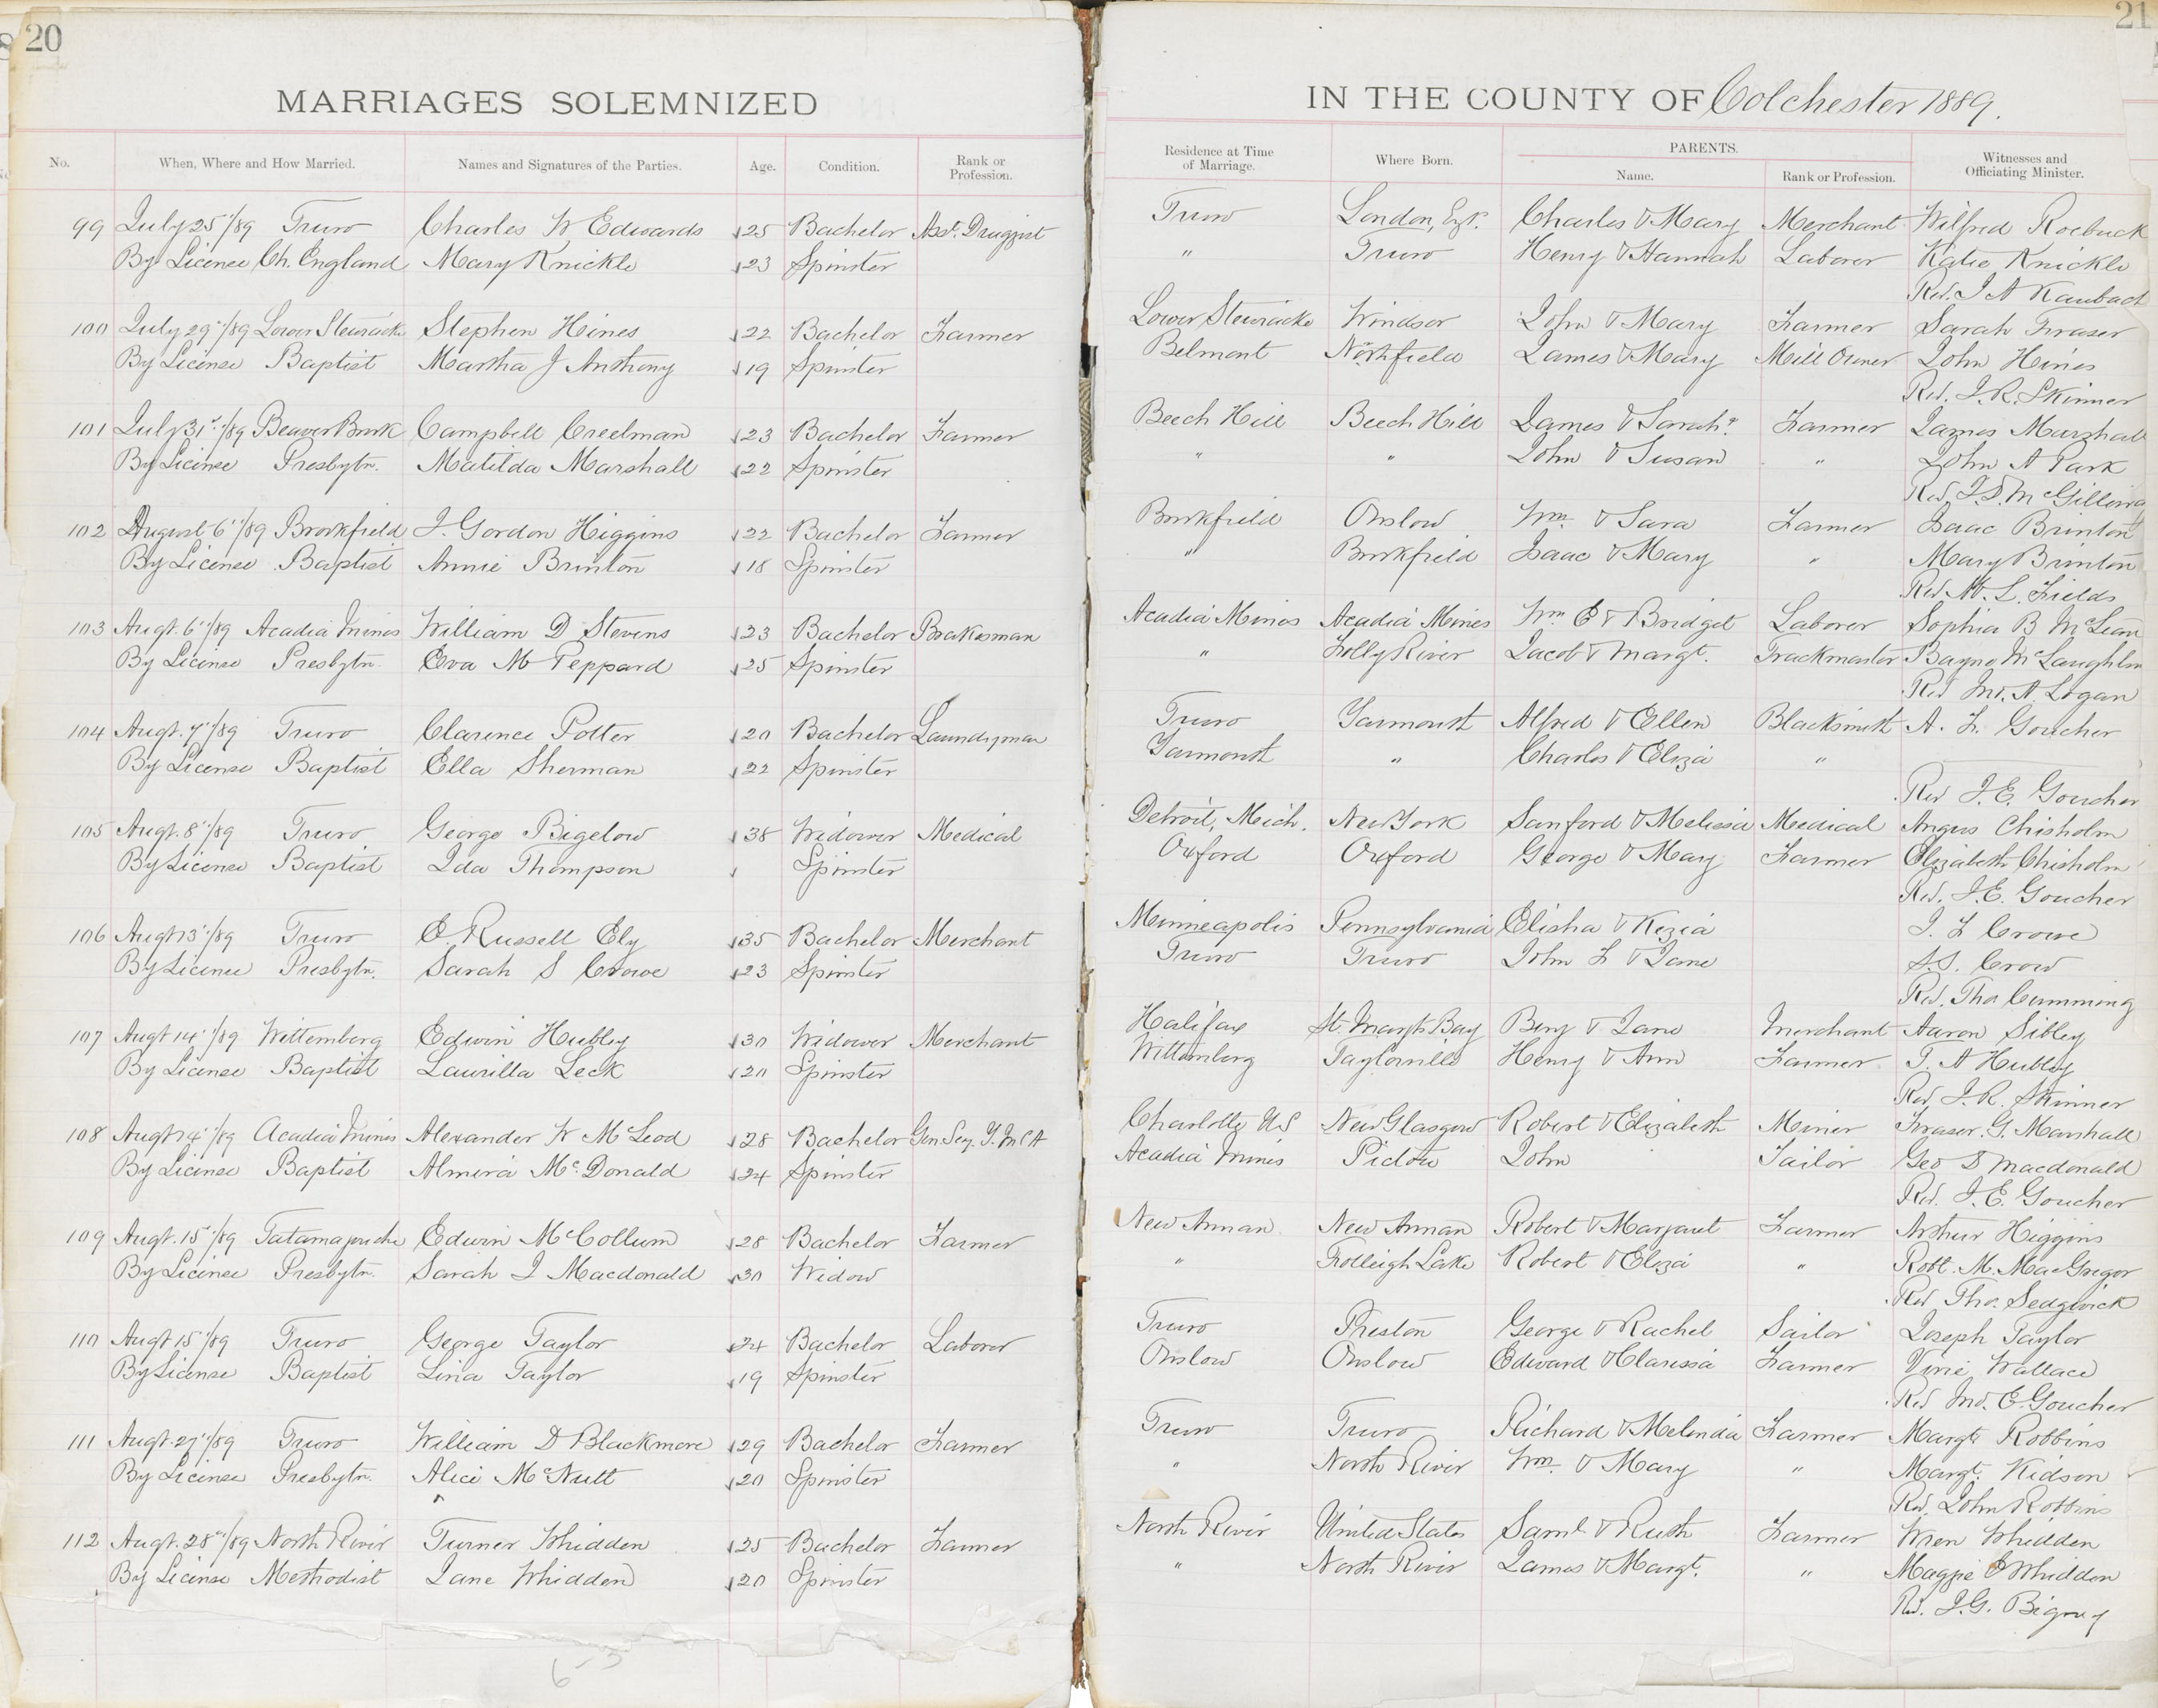 20
MARRIAGES SOLEMNIZED
No. When, Where and How Married. Names and Signatures of the Parties. Age. Condition. Rank or Profession.
99 July 25"/89 Truro Charles W Edwards 25 Bachelor Asst. Druggist
By License Ch. England Mary Knickle 23 Spinster
100 July 29"/89 Lower Stewiacke Stephen Hines 22 Bachelor Farmer
By License Baptist Martha J Anthony 19 Spinster
101 July 31st/89 Beaver Brook Campbell Creelman 23 Bachelor Farmer
By License Presbytn. Matilda Marshall 22 Spinster
102 August 6"/89 Brookfield J. Gordon Higgins 22 Bachelor Farmer
By License Baptist Annie Brinton 18 Spinster
103 Augt. 6"/89 Acadia Mines William D Stevens 23 Bachelor Brakesman
By License Presbytn. Eva M Peppard 25 Spinster
104 Augt. 7"/89 Truro Clarence Potter 20 Bachelor Laundryman
By License Baptist Ella Sherman 22 Spinster
105 Augt. 8"/89 Truro George Bigelow 38 Widower Medical
By License Baptist Ida Thompson Spinster
106 Augt 13"/89 Truro E. Russell Ely 35 Bachelor Merchant
By License Presbytn. Sarah S Crowe 23 Spinster
107 Augt 14"/89 Wittemberg Edwin Hubley 30 Widower Merchant
By License Baptist Laurilla Leck 20 Spinster
108 Augt 14"/89 Acadia Mines Alexander W McLeod 28 Bachelor Gen. Sey. Y.M.C.A
By License Baptist Almira McDonald 24 Spinster
109 Augt. 15"/89 Tatamagouche Edwin McCollum 28 Bachelor Farmer
By License Presbytn. Sarah J Macdonald 30 Widow
110 Augt 15"/89 Truro George Taylor 24 Bachelor Laborer
By License Baptist Liria Taylor 19 Spinster
111 Augt. 27"/89 Truro William D Blackmore 29 Bachelor Farmer
By License Presbytn. Alice McNutt 20 Spinster
112 Augt. 28"/89 North River Turner Whidden 25 Bachelor Farmer
By License Methodist Jane Whidden 20 Spinster
6-3
21
IN THE COUNTY OF Colchester 1889.
Residence at Time of Marriage. Where Born. PARENTS. Name. Rank or Profession. Witnesses and Officiating Minister.
Truro London, Eng. Charles & Mary Merchant Wilfred Roebuck
" Truro Henry & Hannah Laborer Katie Knickle
Rev. J A Kaulbach
Lower Stewiacke Windsor John & Mary Farmer Sarah Fraser
Belmont Northfield James & Mary Mill Owner John Hines
Rev. J. R. Skinner
Beech Hill Beech Hill James & Sarah Farmer James Marshall
" " John & Susan " John A Park
Rev. McGillivray
Brookfield Onslow Wm & Sara Farmer Isaac Brinton
" Brookfield Isaac & Mary " Mary Brinton
Rev M. L. Fields
Acadia Mines Acadia Mines Wm E & Bridget Laborer Sophia B McLean
" Folly River Jacob & Margt. Trackmaster Bayne McLaughlin
Rev Jno. A Logan
Truro Yarmouth Alfred & Ellen Blacksmith A. F. Goucher
Yarmouth " Charles & Eliza "
Rev J. E. Goucher
Detroit, Mich. New York Sanford & Melissa Medical Angus Chisholm
Oxford Oxford George & Mary Farmer Elizabeth Chisholm
Rev. J. E. Goucher
Minneapolis Pennsylvania Elisha & Kezia J. F Crowe
Truro Truro John F & Jane S.S. Crow
Rev. Thos Cumming
Halifax St. Margts Bay Benj & Jane Merchant Aaron Sibley
Wittemberg Taylorville Henry & Ann Farmer T. A Hubley
Rev. J. R. Skinner
Charlotte U.S New Glasgow Robert & Elizabeth Miner Fraser. G. Marshall
Acadia Mines Pictou John Tailor Geo D Macdonald
Rev. J. E. Goucher
New Annan New Annan Robert & Margaret Farmer Arthur Higgins
" Lake Robert & Eliza " Robt. M. MacGregor
Rev Thos. Sedgwick
Truro Preston George & Rachel Sailor Joseph Taylor
Onslow Onslow Edward & Clarissa Farmer Virie Wallace
Rev Jno. E. Goucher
Truro Truro Richard & Melinda Farmer Margt Robbins
" North River Wm. & Mary " Margt. Kidson
Rev. John Robbins
North River United States Saml & Ruth Farmer Wren Whidden
" North River James & Margt. " Maggie E Whidden
Rev. J. G. Bigney